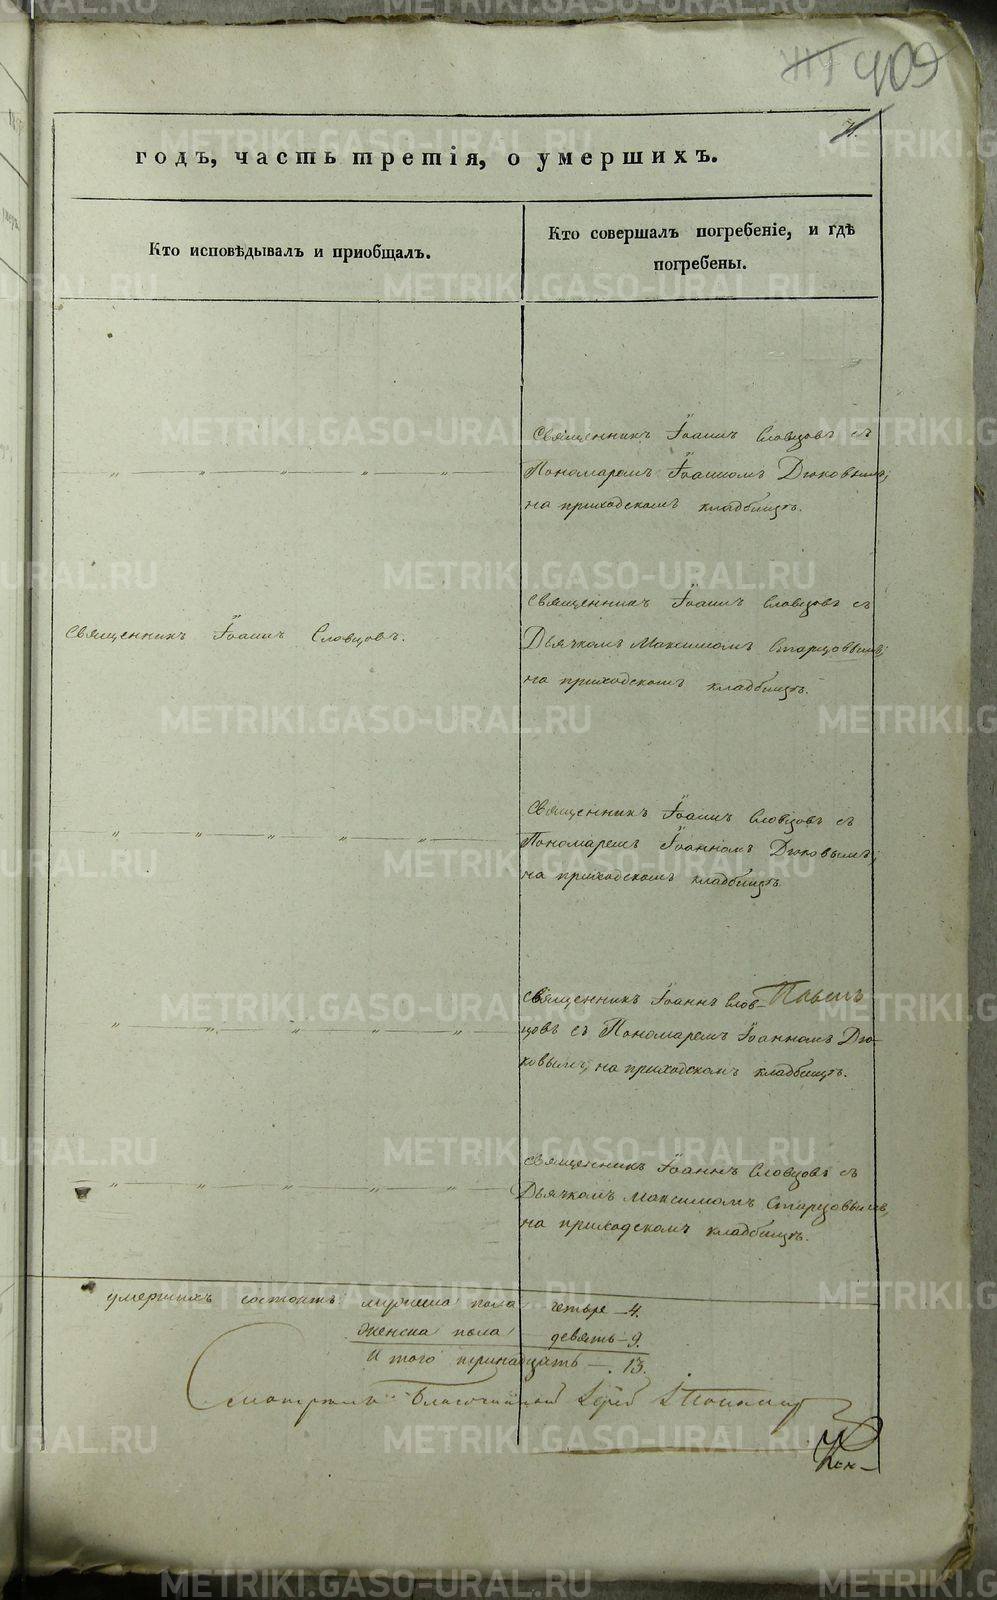 409
годъ, часть третія, о умершихъ.
Кто исповѣдывалъ и приобщалъ.
Кто совершалъ погребеніе, и гдѣ
погребены.
Священникъ Іоаннъ Словцовъ съ
Пономаремъ Іоанномъ Дюковымъ;
на приходскомъ кладбищѣ.
Священникъ Іоаннъ Словцовъ.
Священникъ Іоаннъ Словцовъ съ
Дьячкомъ Максимомъ Старцовымъ;
на приходскомъ кладбищѣ.
Священникъ Іоаннъ Словцовъ съ
Пономаремъ Іоанномъ Дюковымъ;
на приходскомъ кладбищѣ
Священникъ Іоаннъ Слов-
цовъ съ Пономаремъ Іоанномъ Дю-
ковымъ; на приходскомъ кладбищѣ.
Священникъ Іоаннъ Словцовъ съ
Дьячкомъ Максимомъ Старцовымъ,
на приходскомъ кладбищѣ.
умершихъ состоитъ мужеска пола четыре 4.
Женска пола девять - 9.
И того тринадцать - 13.
Смотрѣлъ Благочинный
METRIKI.GASO-URAL.RU